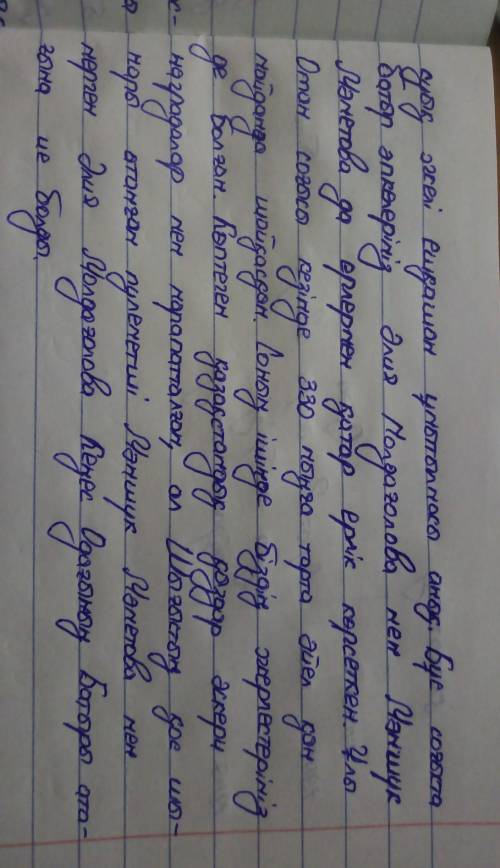 ұдық әжеі ешқашан ұмытылмақ емес. Бұл соғыста
батыр апаларіміз Әлия Молдағолова мен Мәншүк
Маметова да ерлермен қатар ерлік көрсеткен. Ұлы
Отан соғысы кезінде 330 мыңға тарта әйел қан
майданда шайқасқан. Соның ішінде біздің жерлестеріміз
де болған. Көптеген қазақстандық қыздар әскери
наградалар мен марапаталған, ал Шығыстың қос шы-
нары атанған пулеметші Мәншүк Маметова мен
мерген Әлия Молдағолова Кеңес Одағының Батыры ата-
ғына ие болды.